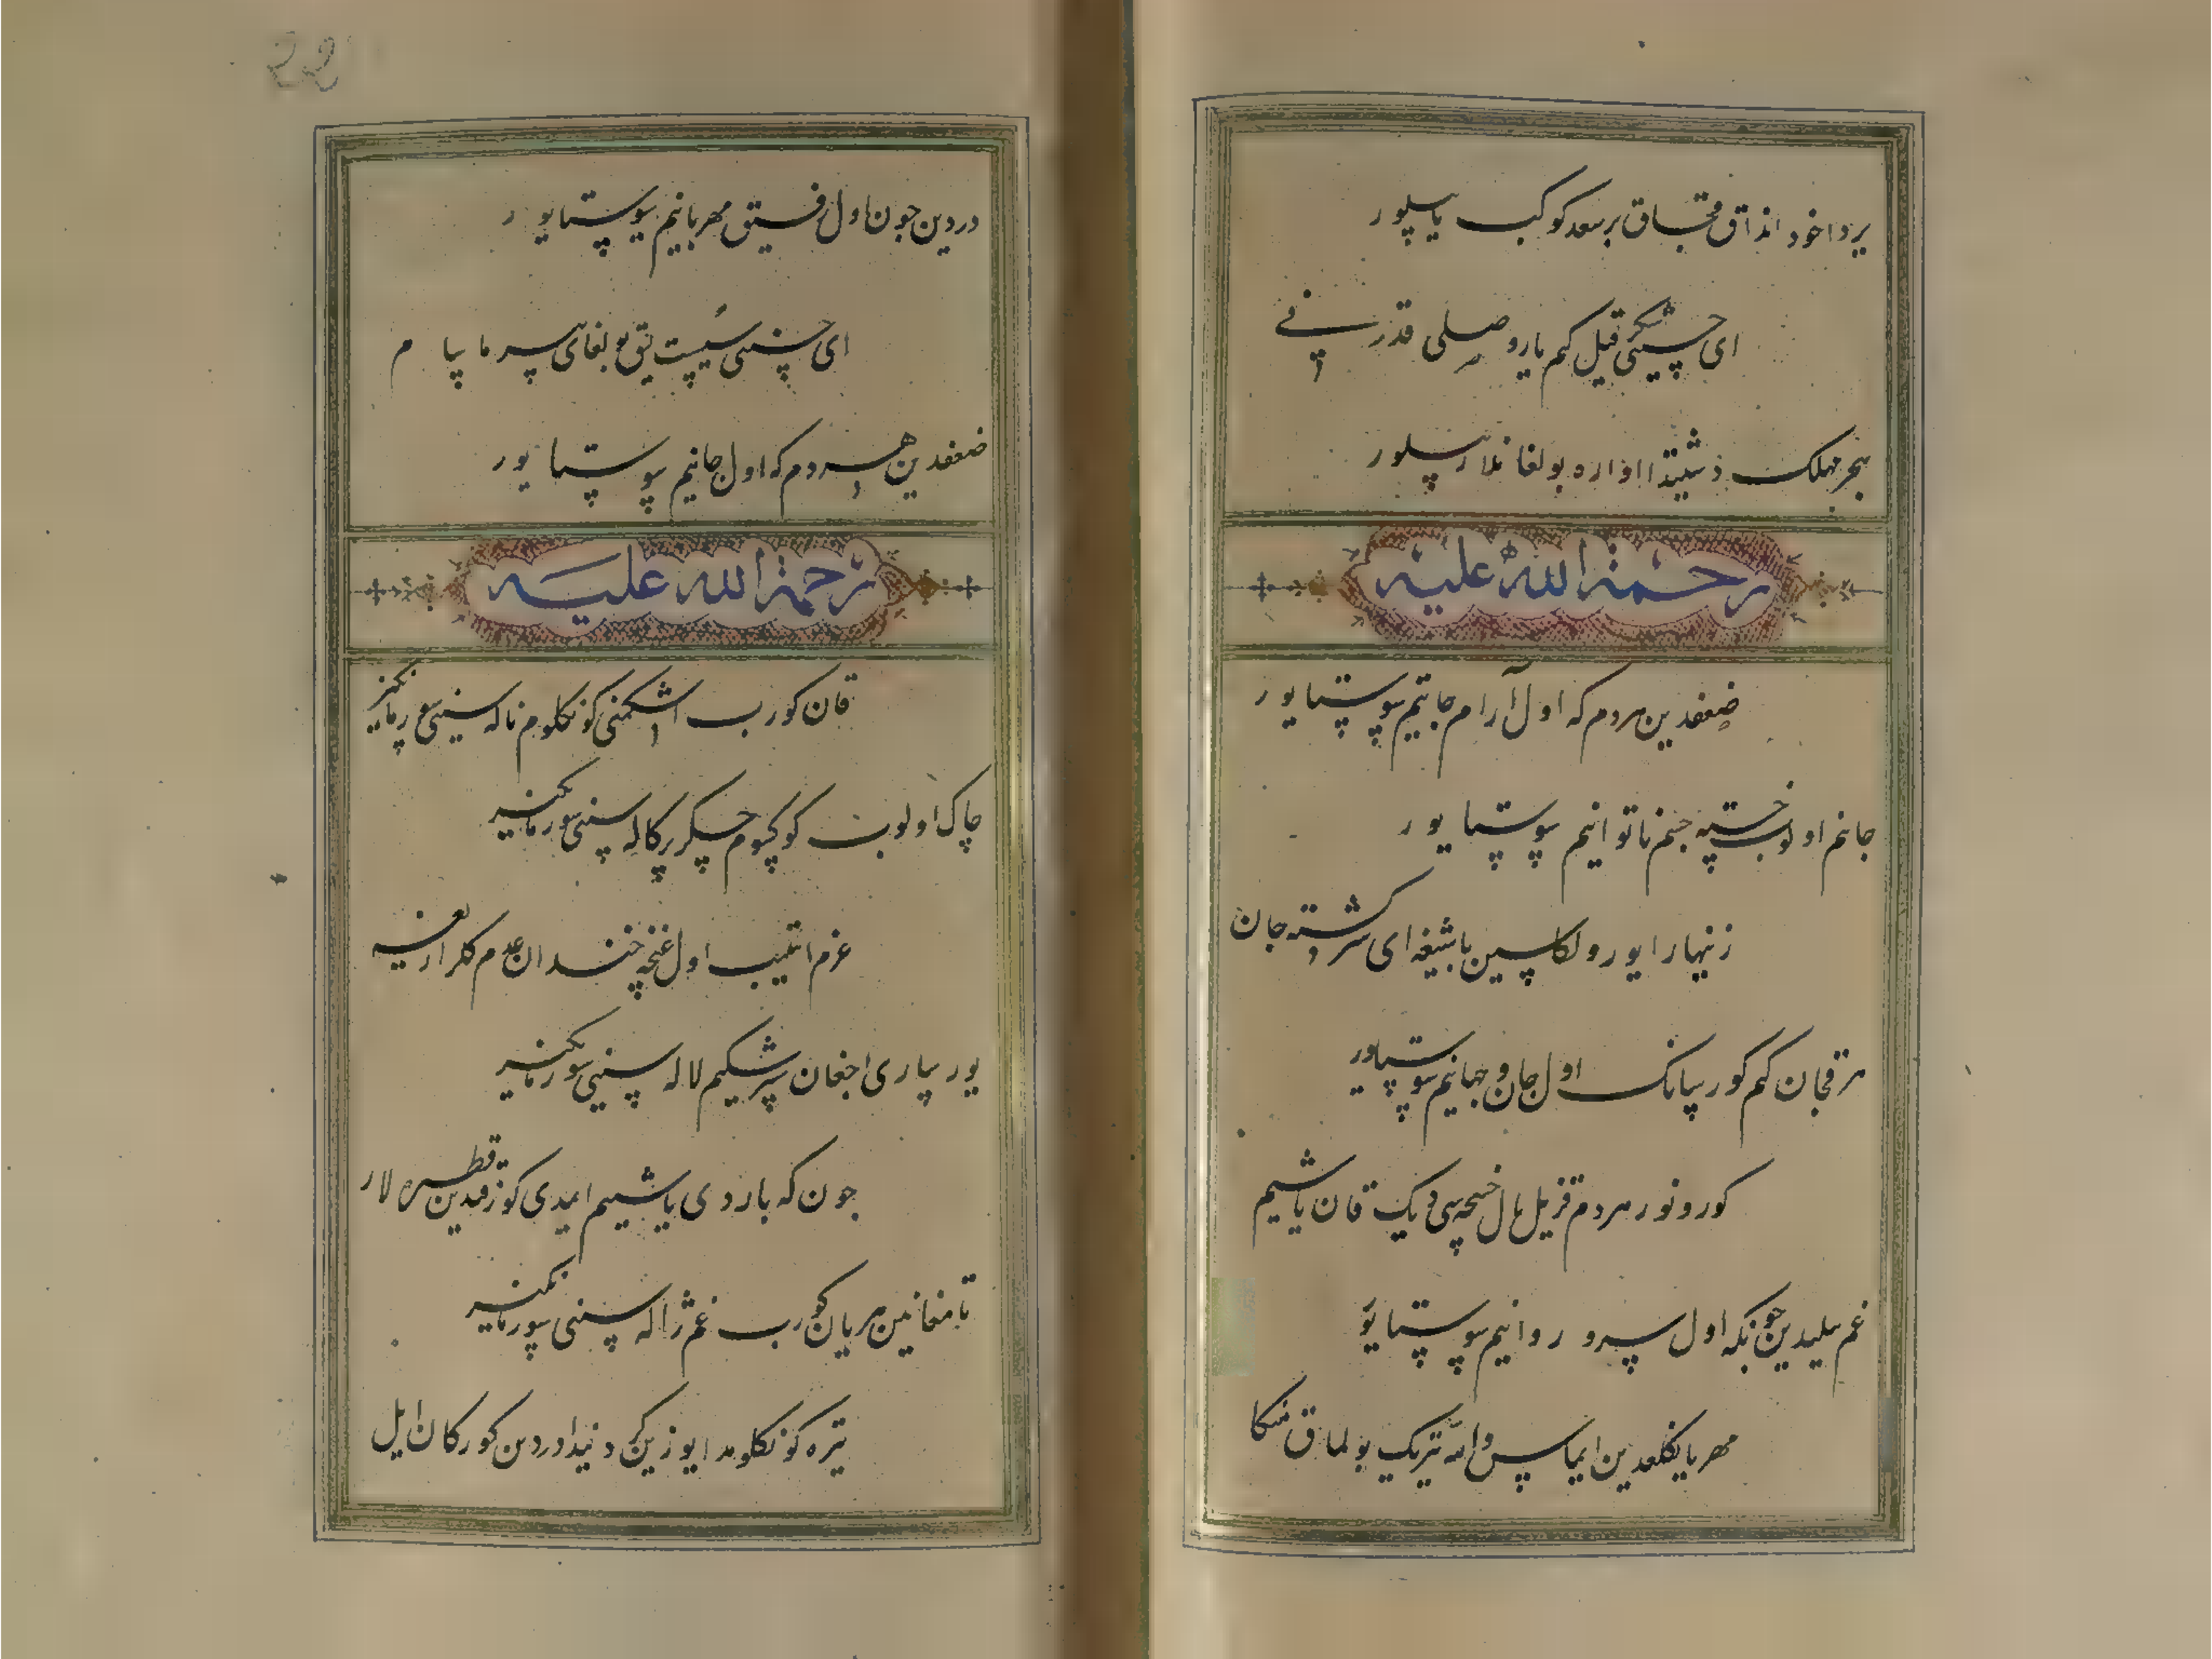 یردا خود انداق قچاق بر سعد کوکب یاسیلور
ای حسینی شکر قیل کم یار وصلی قدرینی
هجر مهلک دشتیدا اواره بولغانلار بیلور
رحمة الله علیه
ضعفدین هر دم که اول آرام جانیم سوستایور
جانم اولوب خسته جسم ناتوانیم سوستایور
زنهار ایورولکاسین باشیغه ای سرکشته جان
هر قچان کم کورسانک اول جان و جهانیم سوستایور
کورونور هر دم قزیل ال خسچه سی دیک قان یاشیم
غم ییلیدین چونکه اول سرو روانیم سوستایور
مهربانلغدین ایماس والله تیریک بولماق منکا
دردین چون اول رفیق مهربانیم سوستایور
ای حسینی سست یق بولغای سرمایام
ضعفدین هر دم که اول جانیم سوستایور
رحمة الله علیه
قان کوروب اشکمنی کونکلوم ناله سینی سورمانکیز
چاک اولوب کوکسوم جکر پرکاله سینی سورمانکیز
عزم ایتیب اول غنچه خندان عدم کلزاریغه
یور ساری اچغان سرشکیم لاله سینی سورمانکیز
چون که باردی یاشیم ایمدی کوزومدین قطره لار
تامغانین هر یان کوروب غم ژاله سینی سورمانکیز
تیره کونکلومدا یوزین کردنیدا وردین کورکان ایل